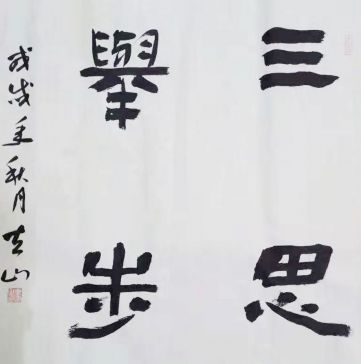 三思
舉步
戊戌年秋月山